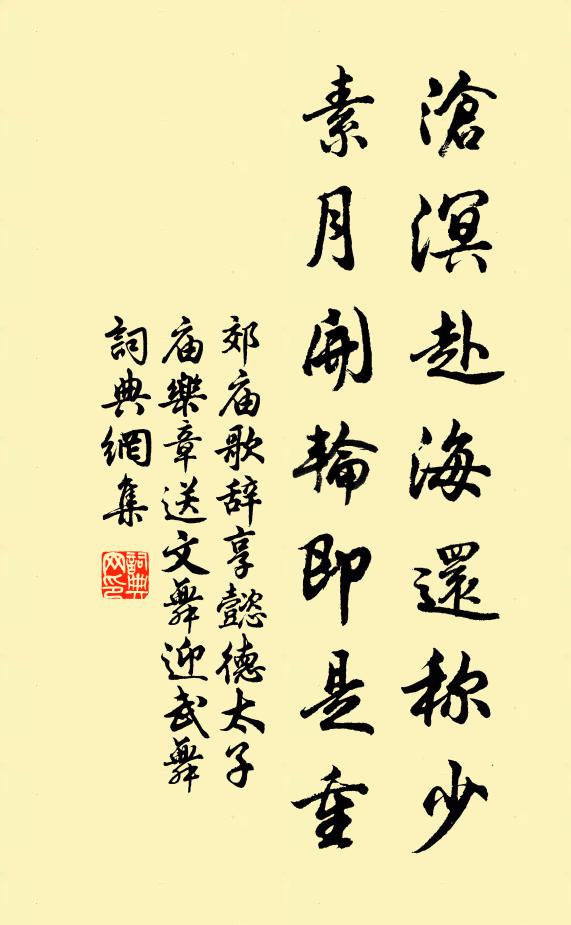 滄溟赴海還称少
素月開輪即是重
郊庙歌辞享懿德太子
庙樂章送文舞迎武舞
詞典網集
詞典
网印